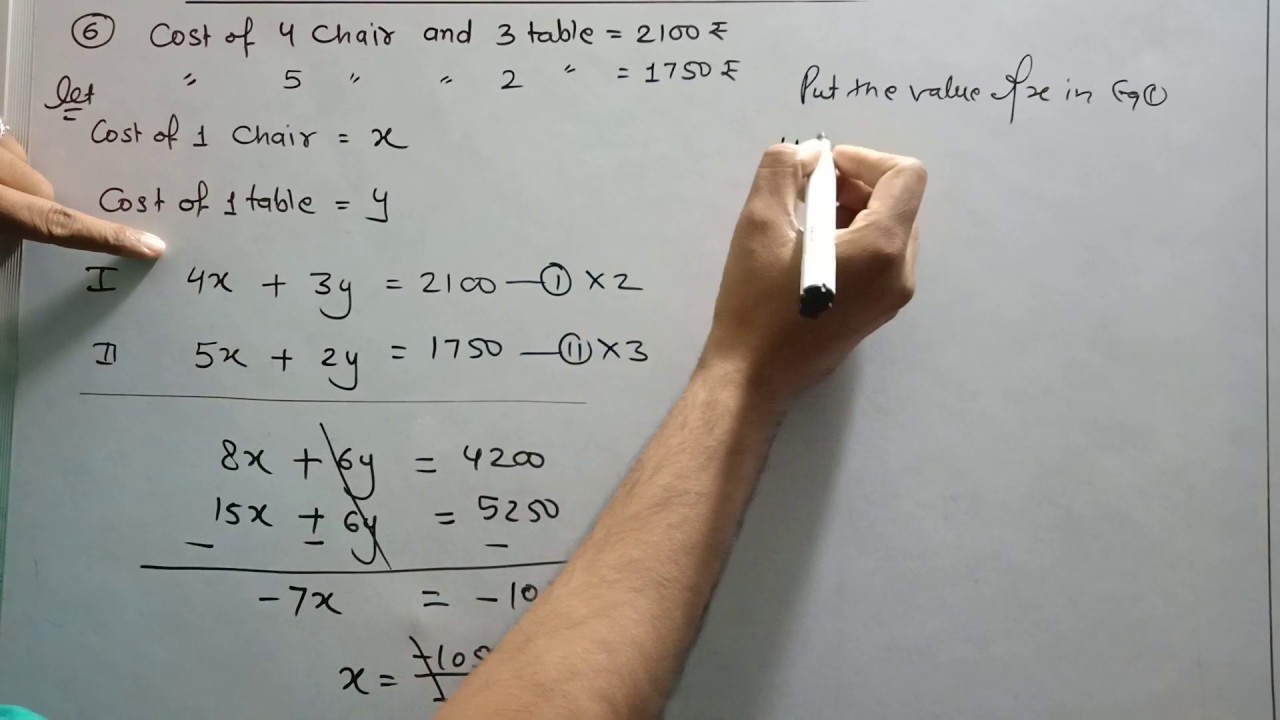 ⑥ Cost of 4 Chair and 3 table = 2100 ₹
〃 5 〃 〃 2 〃 = 1750 ₹
let
Cost of 1 Chair = x
Cost of 1 table = y
I 4x + 3y = 2100 — ① × 2
II 5x + 2y = 1750 — ⑪ × 3
8x + 6y = 4200
15x + 6y = 5250
− − −
-7x = -10
x = -105
Put the value of x in Eq ①